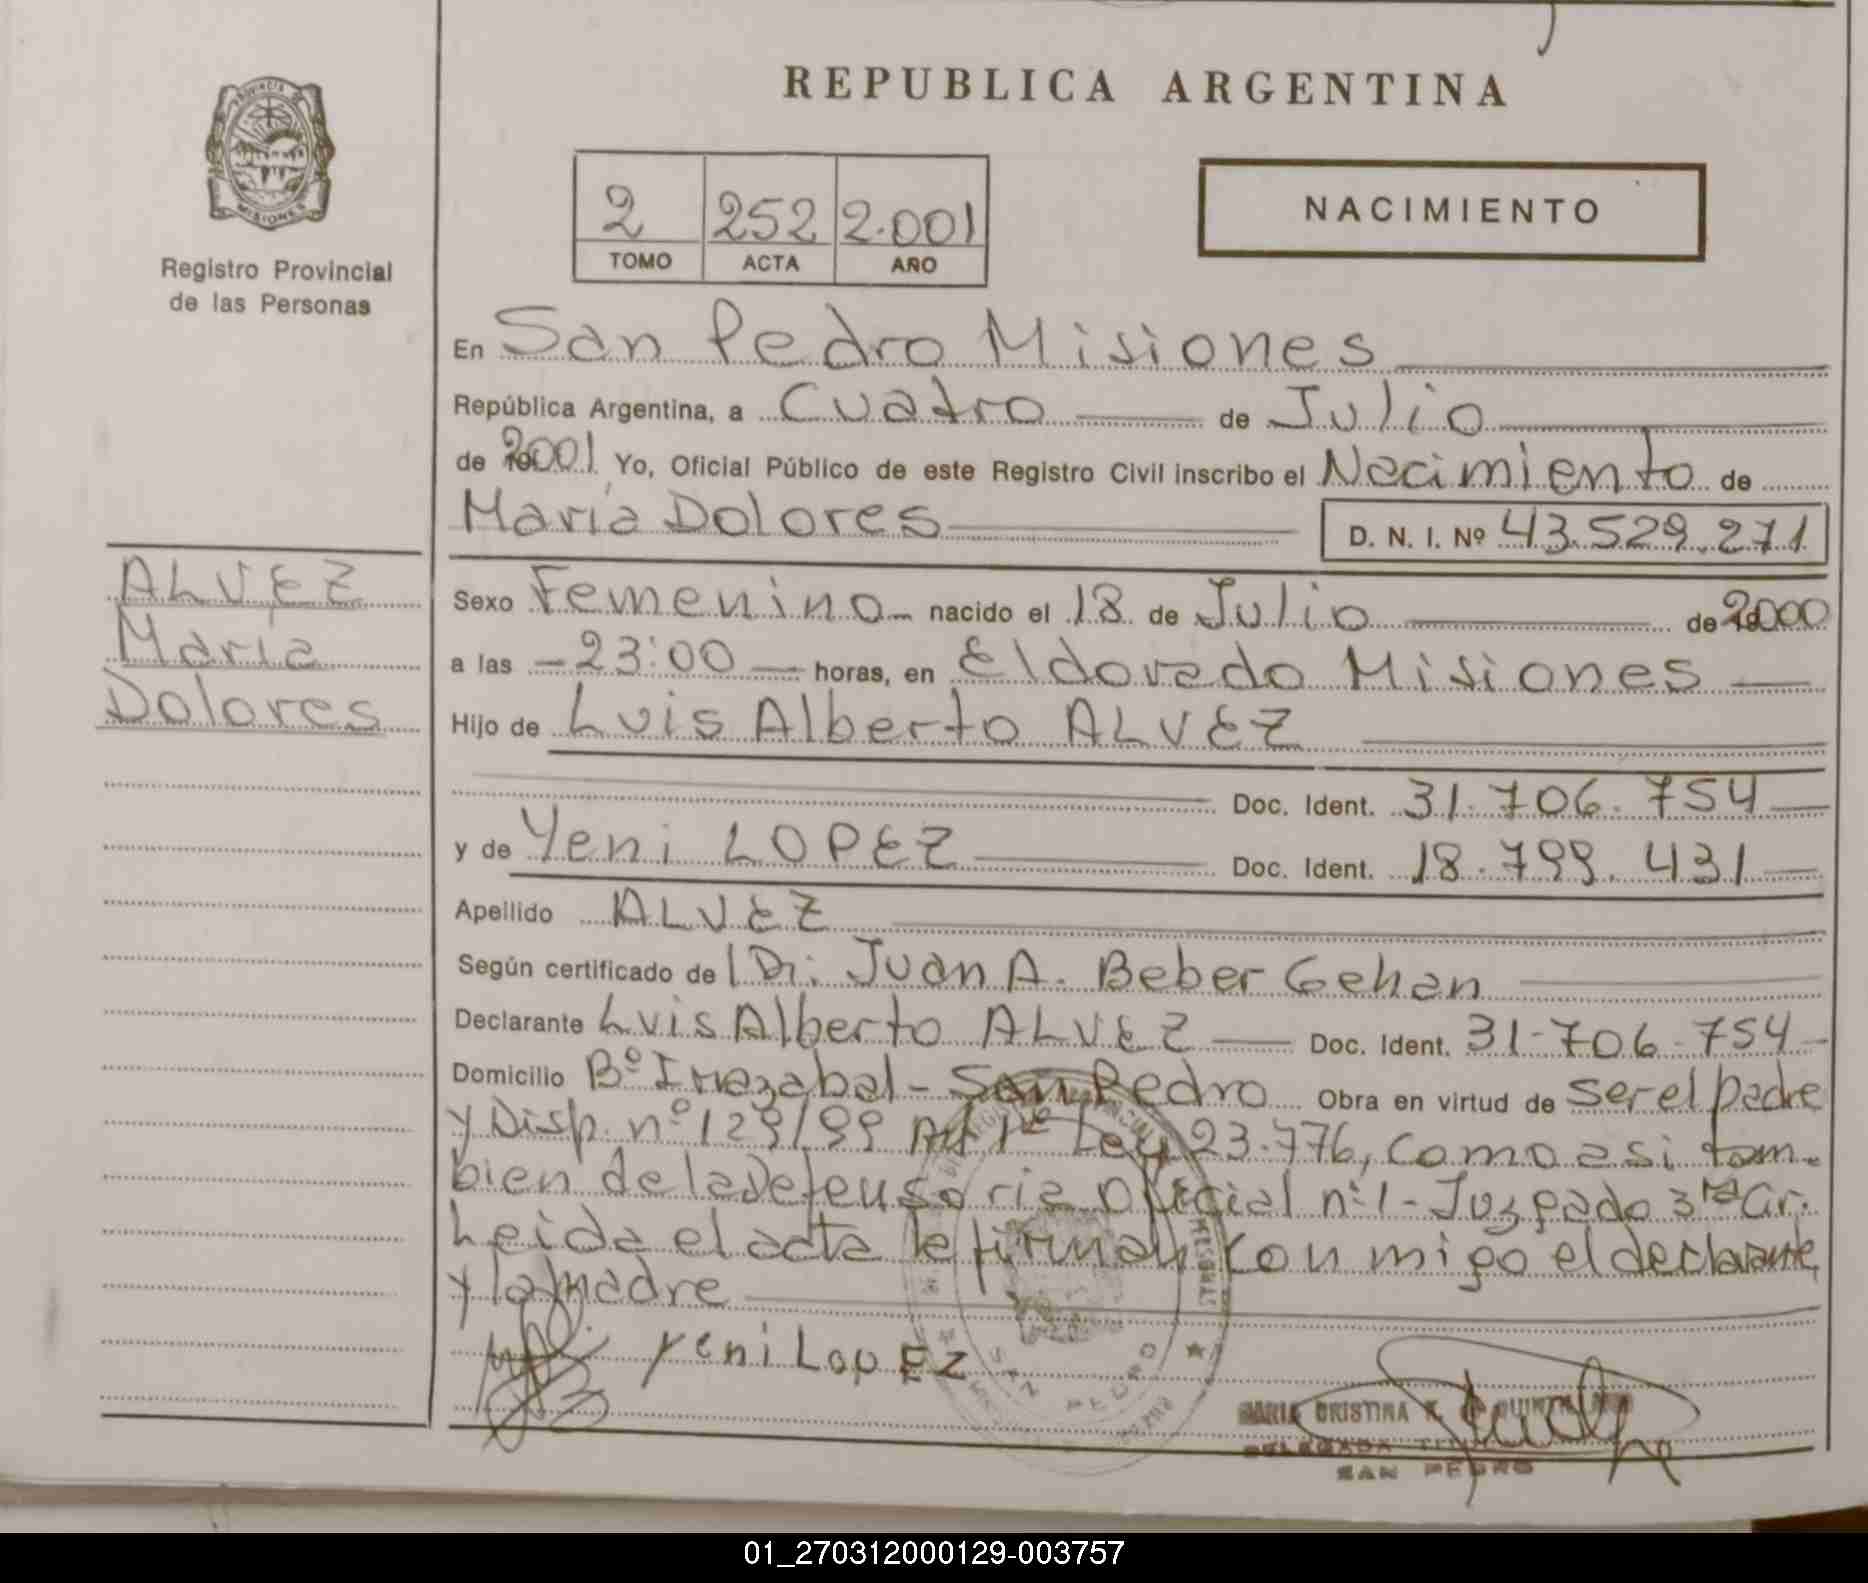 REPUBLICA ARGENTINA
PROVINCIA DE
MISIONES
Registro Provincial
de las Personas
2 252 2.001
TOMO ACTA AÑO
NACIMIENTO
En San Pedro Misiones
República Argentina, a Cuatro de Julio
de 2001 Yo, Oficial Público de este Registro Civil inscribo el Nacimiento de
María Dolores D. N. I. Nº 43.529.271
ALVEZ
María
Dolores
Sexo Femenino nacido el 18 de Julio de 2000
a las 23:00 horas, en Eldorado Misiones
Hijo de Luis Alberto ALVEZ
Doc. Ident. 31.706.754
y de Yeni LOPEZ Doc. Ident. 18.799.431
Apellido ALVEZ
Según certificado de Dr. Juan A. Beber Gehan
Declarante Luis Alberto ALVEZ Doc. Ident. 31-706-754
Domicilio Bº Irrazabal - San Pedro Obra en virtud de ser el padre
y Disp. nº 129/99 Art 1º Ley 23.776, como asi tam-
bien de la Defensoria Oficial nº 1 - Juzgado 3ra Cir.
Leida el acta la firman conmigo el declarante
y la madre
yeni LopEZ
SAN PEDRO
MARIA CRISTINA
DELEGADA
SAN PEDRO
01_270312000129-003757